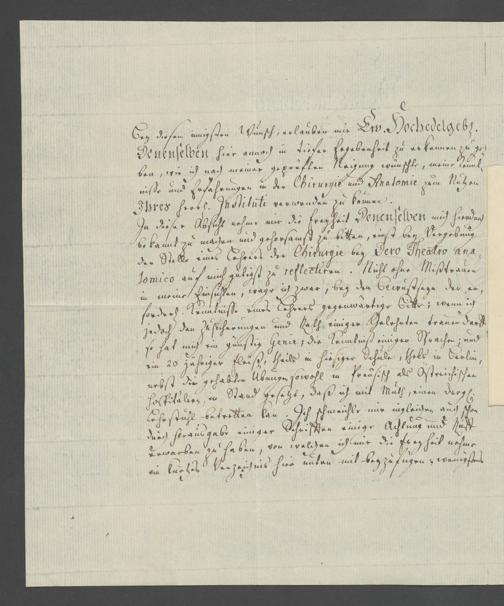 Bey diesem innigsten Wunsch, erlauben mir Ew. Hochedelgeb.
Denenselben hier annoch in tiefer Ergebenheit zu erkennen zu ge
ben, wie ich nach meiner geprüften Neigung wünschte, meine Kennt
nisse und Erfahrungen in der Chirurgie und Anatomie zum Nutzen
Ihres Instituts verwenden zu können.
In dieser Absicht nehme mir die Freyheit Denenselben mich hierdurch
bekannt zu machen und gehorsamst zu bitten, einst bey Vergebung
der Stelle eines Lehrers der Chirurgie bey Dero Theatro ana
tomico auf mich gütigst zu reflectiren. Nicht ohne Mißtrauen
in meine Einsichten, wage ich zwar, bey dem Bewußtseyn der er„
forderl. Kenntnisse eines Lehrers gegenwärtige Bitte; wenn ich
jedoch den Zusicherungen und Rath einiger Gelehrten trauen darf
so hat mich ein günstig Genie; die Kenntniß einiger Sprachen; und
ein 20 jähriger Fleiß, theils in hiesiger Schule, theils in Berlin,
nebst die gehabten Uebungen sowohl in Preußisch als Ostreichischen
Hospitälern in Stand gesetzt, daß ich mit Muth, einen dergl.
Lehrstuhl betretten kan. Ich schmeichle mir zugleich auch schon
durch Herausgabe einiger Schriften einige Achtung und
erworben zu haben, von welchen ich mir die Freyheit nehme
ein kurzes Verzeichnis hier unten mit beyzufügen; wenigstens